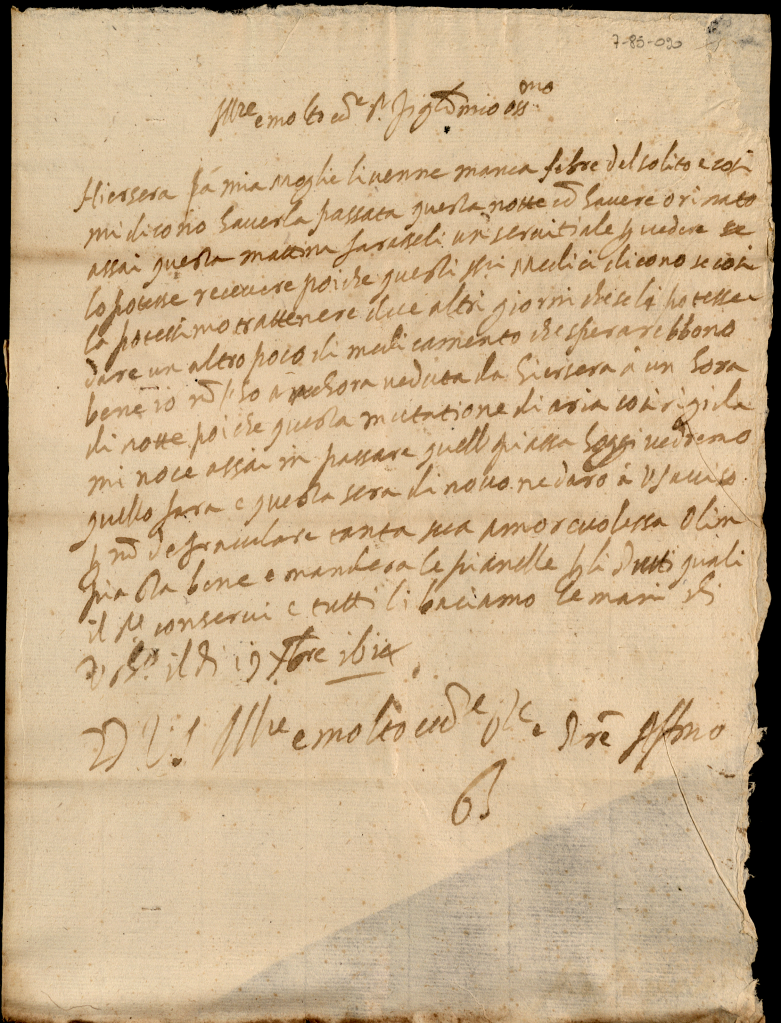 7-85-090
Ill.re e molto ecc.te S.r mio oss.mo
Hiersera mia Moglie li venne manca febre del solito e così
mi dicono haverla passata questa notte ed havere orinato
assai questa mattina farasseli un servitiale p vedere se
lo potesse recevere poi che questi ss.ri Medici dicono se così
la potessimo trattenere due altri giorni che se li potesse
dare un altro poco di medicamento che sperarebbono
bene io nō l'ho anchora veduta da hiersera à un hora
di notte poi che questa mutatione di aria così rigida
mi noce assai in passare quella piassa hoggi vedremo
quello sara e questa sera di novo ne daro à VS aviso
p nō defraudare tanta sua amorevolessa Olim
pia sta bene e mandera le pianelle p li putti quali
il S.re conservi e tutti li baciamo le mani di
V S.ria il dì 19 Xbre 1614
D V S Ill.re e molto ecc.te e Ser.re Aff.mo